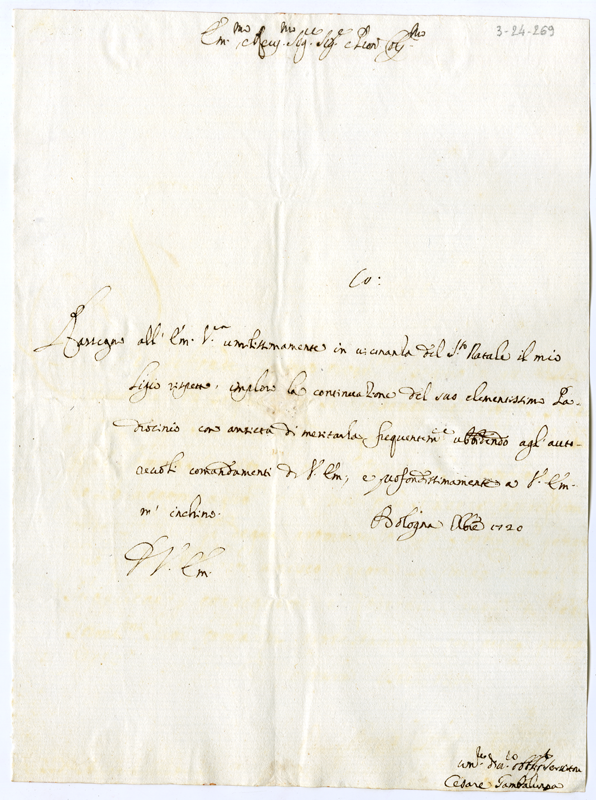 3-24-269
Em.mo e Reu.mo Sig.re Sig.re e Pron Col.mo
Co:
Rassegno all' Em.a V.ra umilissimamente in uicinanza del S.to Natale il mio
ligio rispetto, imploro la continuazione del suo clementissimo Pa-
drocinio con ansietà di meritarla frequentem.te ubbidendo agl' auto-
reuoli comandamenti di V. Em., e profondissimamente a V. Em.
m' inchino.
Bologna Xbre 1720
D V. Em.
um.mo diu.mo obb.mo Seruitore
Cesare Gambalunga